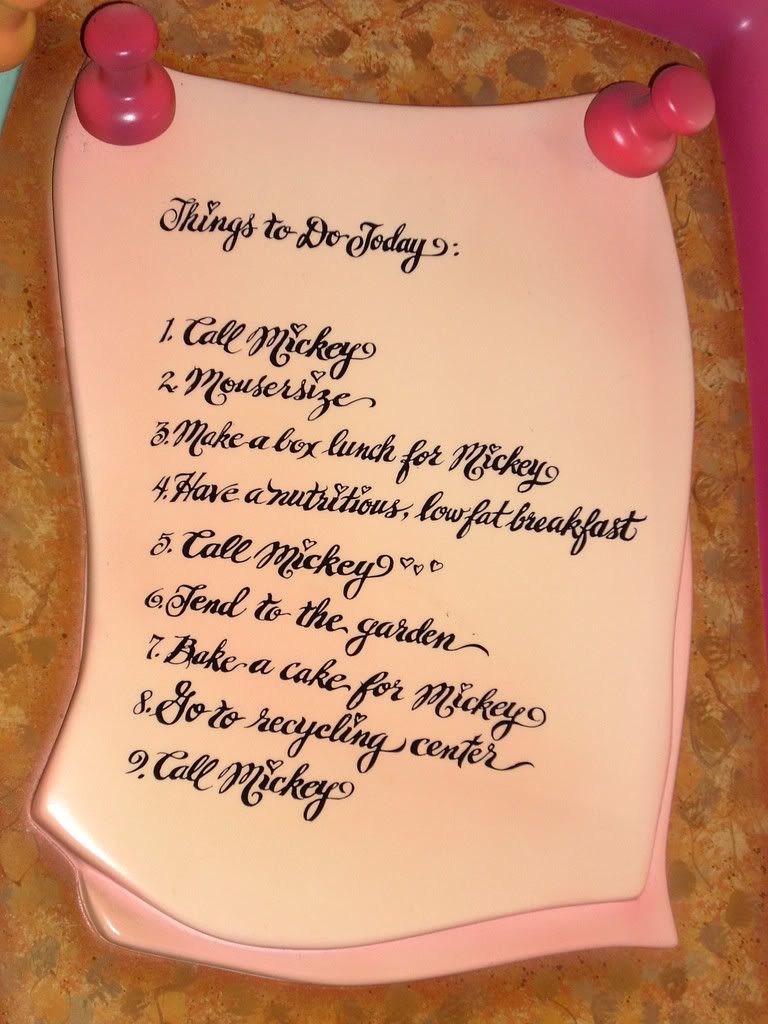 Things to Do Today:
1. Call Mickey
2. Mousersize
3. Make a box lunch for Mickey
4. Have a nutritious, low fat breakfast
5. Call Mickey
6. Tend to the garden
7. Bake a cake for Mickey
8. Go to recycling center
9. Call Mickey